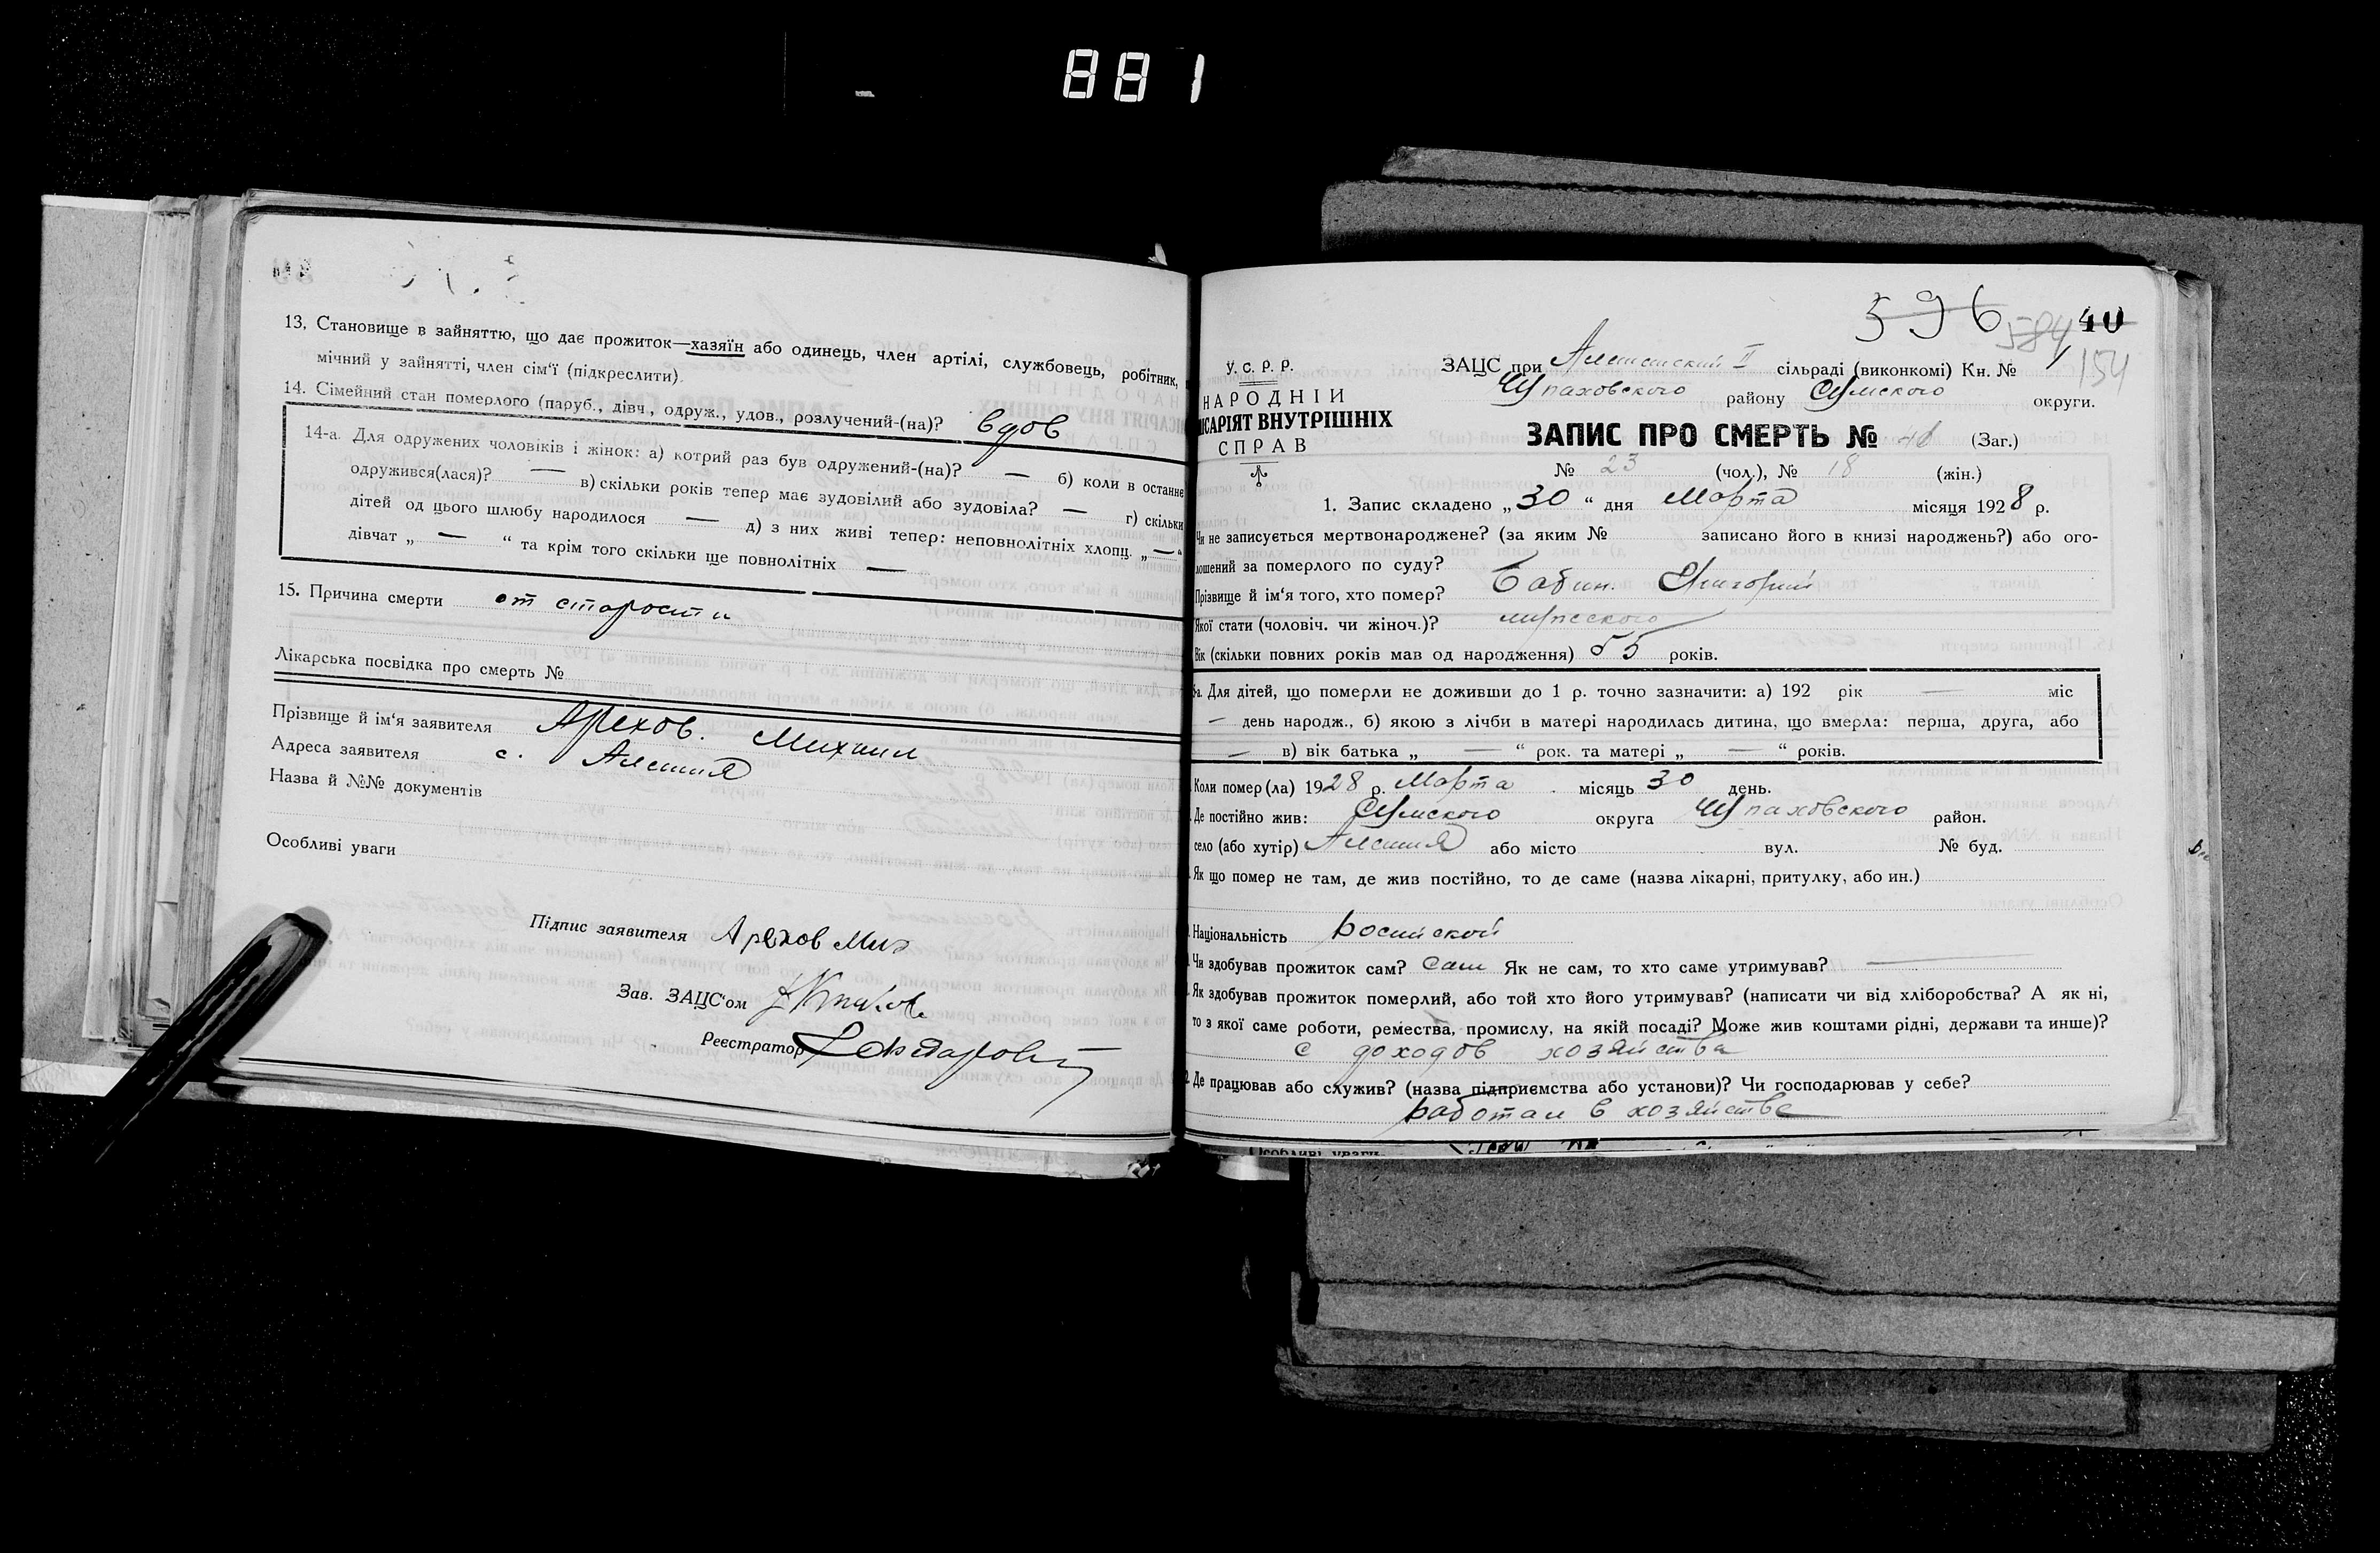 881
13. Становище в зайняттю, що дає прожиток—хазяїн або одинець, член артілі, службовець, робітник,
мічний у зайнятті, член сім'ї (підкреслити).
14. Сімейний стан померлого (паруб., дівч., одруж., удов., розлучений-(на)? вдов
14-а. Для одружених чоловіків і жінок: а) котрий раз був одружений-(на)? — б) коли в останнє
одружився(лася)? — в) скільки років тепер має зудовілий або зудовіла? — г) скільки
дітей од цього шлюбу народилося — д) з них живі тепер: неповнолітніх хлопц. „—“
дівчат „ — “ та крім того скільки ще повнолітніх —
15. Причина смерти от старости
Лікарська посвідка про смерть №
Прізвище й ім'я заявителя Арехов. Михаил
Адреса заявителя с. Алешня
Назва й №№ документів
Особливі уваги
Підпис заявителя Арехов Мих
Зав. ЗАЦС'ом
Реєстратор
596 584 40
154
У. С. Р. Р.
НАРОДНІЙ
ІСАРІЯТ ВНУТРІШНІХ
СПРАВ
ЗАЦС при II сільраді (виконкомі) Кн. № 1
району Сумского округи.
ЗАПИС ПРО СМЕРТЬ № (Заг.)
№ 23 (чол.), № 18 (жін.)
1. Запис складено „30“ дня Марта місяця 1928 р.
Чи не записується мертвонароджене? (за яким № записано його в книзі народжень?) або ого-
лошений за померлого по суду?
Прізвище й ім'я того, хто помер? Бабин. Григорий
Якої стати (чоловіч. чи жіноч.)? мужеского
Вік (скільки повних років мав од народження) 55 років.
а. Для дітей, що померли не доживши до 1 р. точно зазначити: а) 192 рік — міс
— день народж., б) якою з лічби в матері народилась дитина, що вмерла: перша, друга, або
— в) вік батька „ — “ рок. та матері „ — “ років.
Коли помер(ла) 1928 р. Марта місяць 30 день.
Де постійно жив: Сумского округа район.
село (або хутір) Алешня або місто вул. № буд.
Як що помер не там, де жив постійно, то де саме (назва лікарні, притулку, або ин.)
Національність Росийской
Чи здобував прожиток сам? Сам Як не сам, то хто саме утримував? —
Як здобував прожиток померлий, або той хто його утримував? (написати чи від хліборобства? А як ні,
то з якої саме роботи, ремества, промислу, на якій посаді? Може жив коштами рідні, держави та инше)?
с доходов хозяйства
Де працював або служив? (назва підприємства або установи)? Чи господарював у себе?
работал в хозяйстве
Особливі уваги